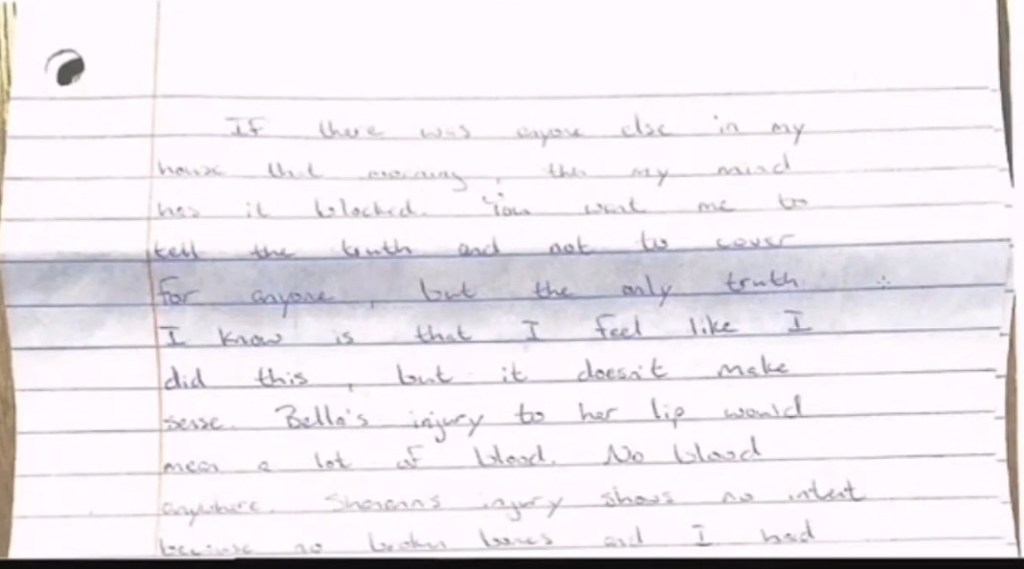 If there was anyone else in my
house that morning, then my mind
has it blocked. You want me to
tell the truth and not to cover
for anyone, but the only truth
I know is that I feel like I
did this, but it doesn't make
sense. Bella's injury to her lip would
mean a lot of blood. No blood
anywhere. Shanann's injury shows no intent
because no broken bones and I had